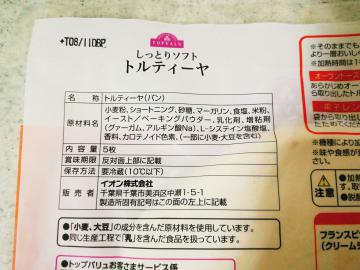 +T08/110BP
TOPVALU
しっとりソフト
トルティーヤ
名 称 トルティーヤ(パン)
原材料名 小麦粉、ショートニング、砂糖、マーガリン、食塩、米粉、
イースト/ベーキングパウダー、乳化剤、増粘剤
(グァーガム、アルギン酸Na)、L-システイン塩酸塩、
香料、カロテノイド色素、(一部に小麦・大豆を含む)
内容量 5枚
賞味期限 反対面上部に記載
保存方法 要冷蔵(10℃以下)
販売者 イオン株式会社
千葉県千葉市美浜区中瀬1-5-1
製造所固有記号はこの面の左上に記載
●「小麦、大豆」の成分を含んだ原材料を使用しています。
●同じ生産工程で「乳」を含んだ食品を扱っています。
●トップバリュお客さまサービス係
●そのままでも
より一層おいしく
※加熱時間は1
オーブントー
あらかじめオー
ら取り出したトル
電子レン
袋から取り出し
たトルティ
※機種により加
※味や食感が
注意
フランスピ
(クリームチ